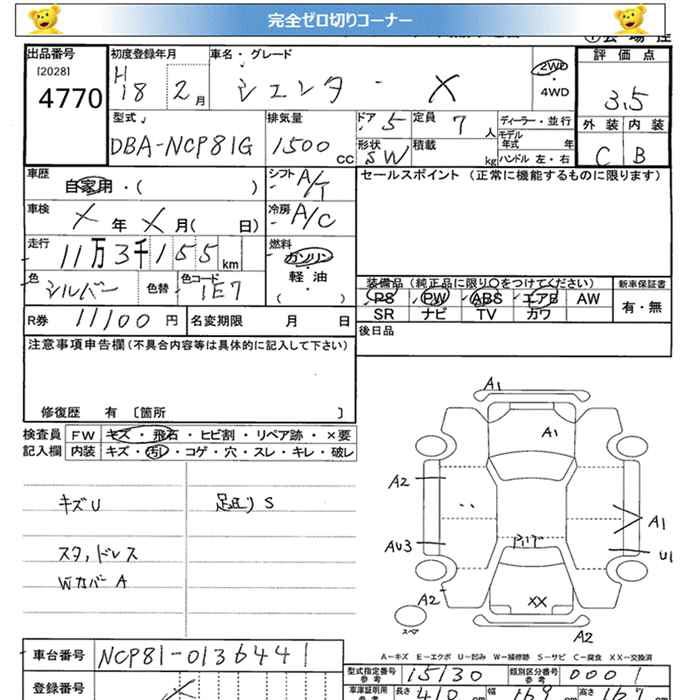 完全ゼロ切りコーナー
出品番号
[2028]
4770
初度登録年月
H18 2月
車名・グレード
シエンタ・X
2WD
・
4WD
評価点
3.5
外装 内装
C B
型式
DBA-NCP81G
排気量
1500 CC
ドア 5
形状 SW
定員 7 人
積載 kg
ディーラー・並行
モデル年式 年
ハンドル 左・右
車歴
自家用・( )
シフト A/T
車検
X年X月( 日)
冷房 A/C
走行
11万3千155km
燃料
ガソリン
軽・油
( )
色
シルバー
色替
色コード
1E7
R券 11100円
名変期限 月 日
セールスポイント(正常に機能するものに限ります)
装備品(純正品に限り○をつけてください)
PS PW ABS エアB AW
SR ナビ TV カワ
新車保証書
有・無
後日品
注意事項申告欄(不具合内容等は具体的に記入して下さい)
修復歴 有 〔箇所 〕
検査員
記入欄
FW キズ・飛石・ヒビ割・リペア跡・×要
内装 キズ・汚レ・コゲ・穴・スレ・キレ・破レ
キズU
足廻りS
スタッドレス
WカバーA
A1
A1
A2
A1
AU3
U1
A2
XX
A2
スペア
A-キズ E-エクボ U-凹み W-補修跡 S-サビ C-腐食 XX-交換済
車台番号 NCP81-0136441
登録番号
型式指定番号
参考
15130
類別区分番号
参考
0001
車庫証明用
参考
長さ 410 cm
幅 169 cm
高さ 167 cm